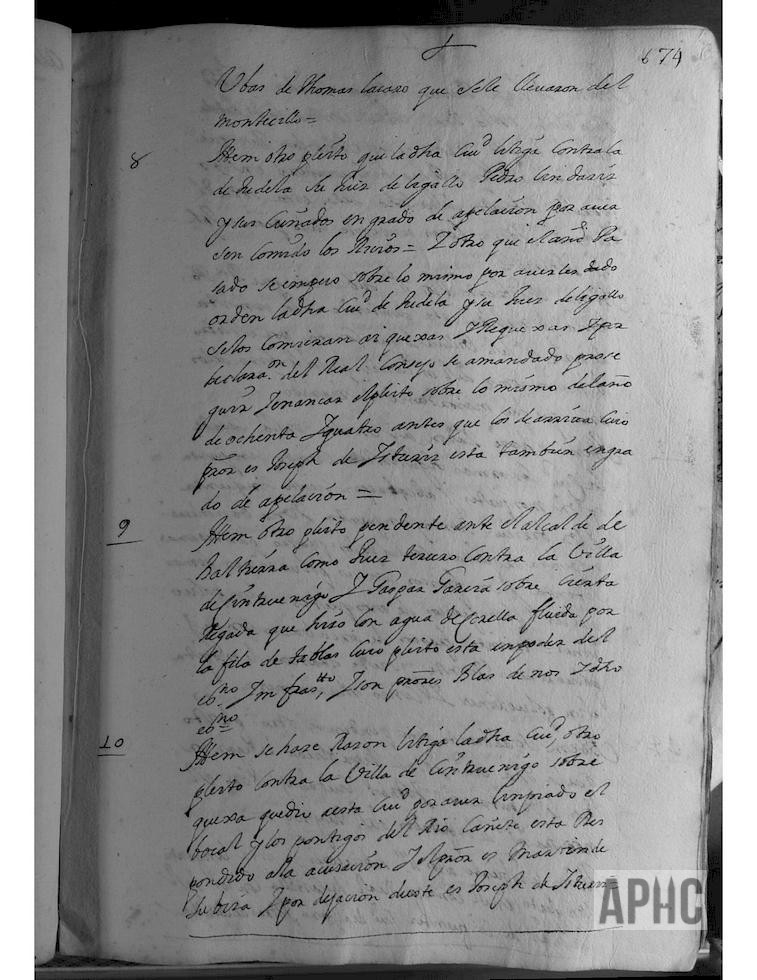 674
Ubas de Thomas lacaxo que sele lleuaron del
montecillo=
8
Ittem otro pleito que la dha Ciud litiga Contra la
de tudela su Juez de ligallo Pedro
y sus Cuñados en grado de apelacion por auer
sen Comido los = Y otro que el año Pa
sado se empezo sobre lo mismo por auerles dado
orden la dha Ciud de tudela y su Juez de ligallo
selos Comieran ai quexas Y Requexas Y por
declaraon del Real Consejo se amandado prose
guir Y el pleito sobre lo mismo del año
de ochenta Yquatro antes que los de arriua Cuio
pror es Joseph de Ysturiz esta tambien engra
do de apelacion =
9
Ittem otro pleito pendente ante el alcalde de
Baltierra como Juez tercero Contra la Villa
de Çintruenigo Y Gaspar Garcia sobre Cierta
Regada que hiso con agua de Corella fluida por
la fila de tablas Cuio pleito esta enpoder del
esno Y son prores Blas de nos Y dho
esno
10
Ittem se haze Razon litiga la dha Ciud otro
pleito Contra la Villa de Çintruenigo sobre
quexa que dio desta Ciud por auer limpiado el
bocal y los pontigos del Rio Cañete esta Res
pondido ala acusacion Y el pror es Martin de
Subiza Y por dejacion deeste es Joseph de Ysturiz=
APHC